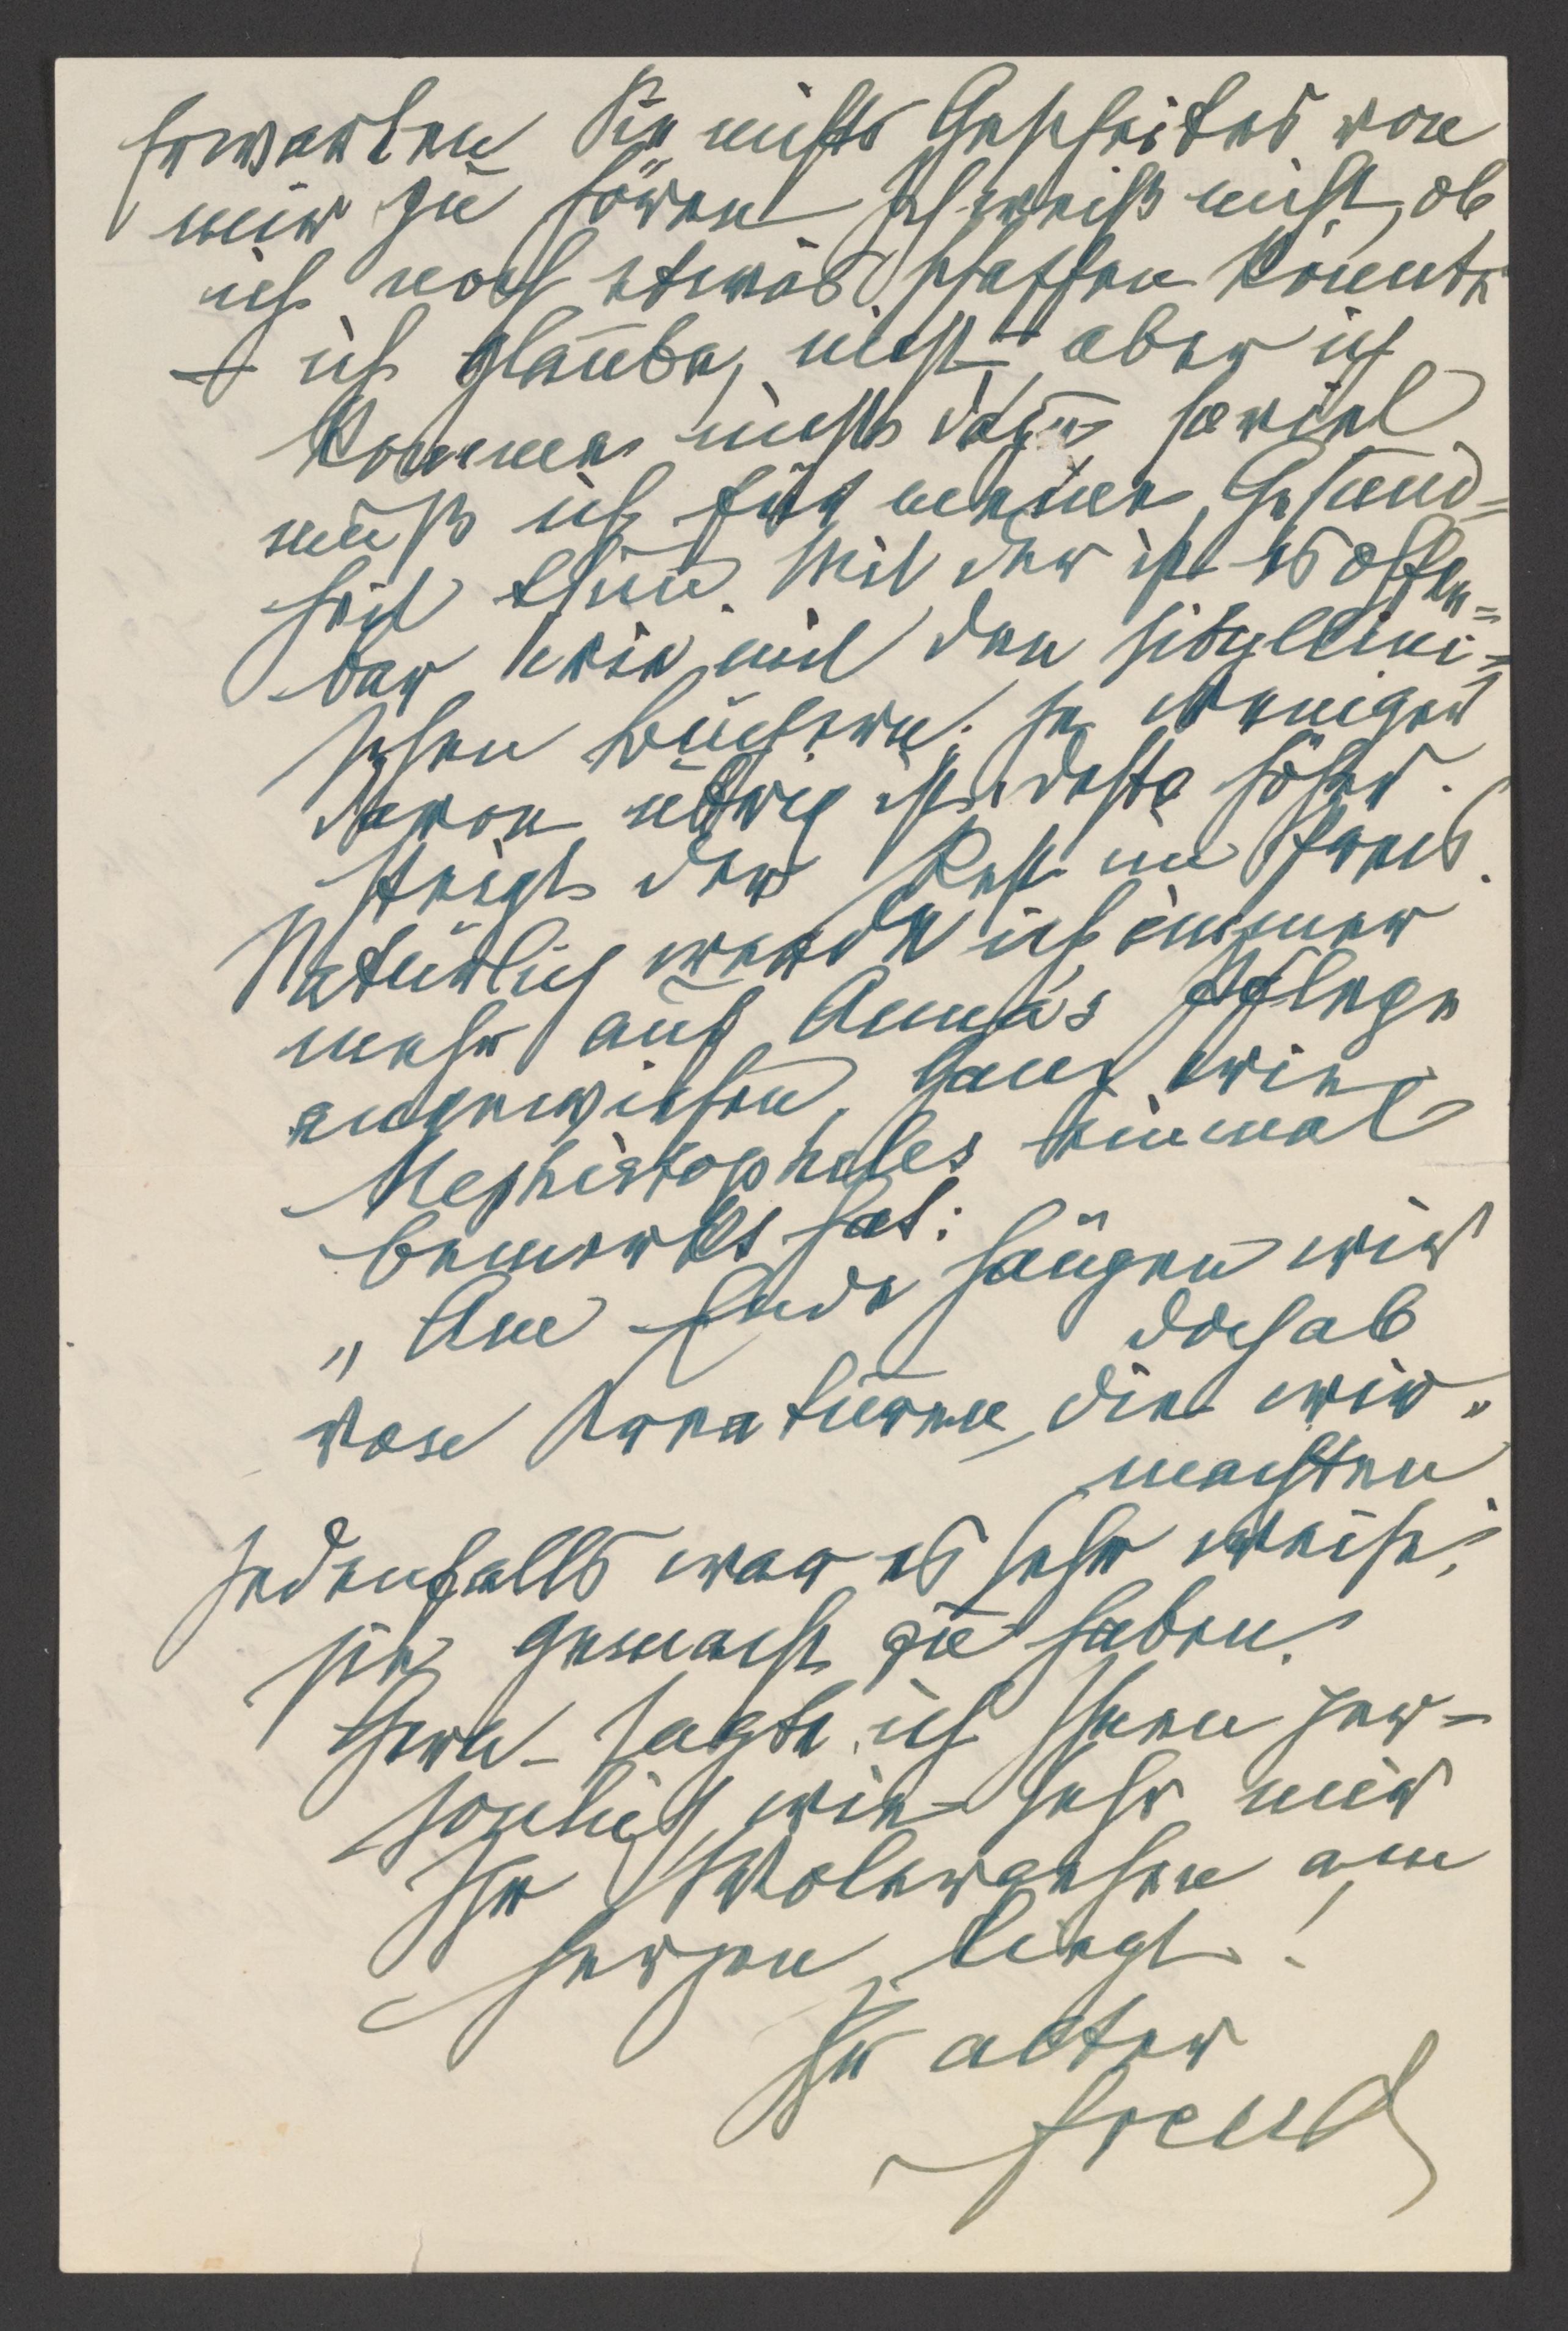 Erwarten Sie nichts Gescheites von
mir zu hören. Ich weiß nicht, ob
ich noch etwas schaffen könnte
– ich glaube, nicht – aber ich
komme nicht dazu, soviel
muß ich für meine Gesund=
heit thun. Mit der ist es offen=
bar wie mit den sibyllini=
schen Büchern; je weniger
davon übrig ist, desto höher
steigt der Rest im Preis.
Natürlich werde ich immer
mehr auf Anna's Pflege
angewiesen, ganz wie
Mephistopheles einmal
bemerkt hat:
„Am Ende hängen wir
doch ab
von Kreaturen, die wir"
machten.
Jedenfalls war es sehr weise,
sie gemacht zu haben.
Gern sagte ich Ihnen per=
sönlich, wie sehr mir
Ihr Wolergehen am
Herzen liegt!
Ihr alter
Freud